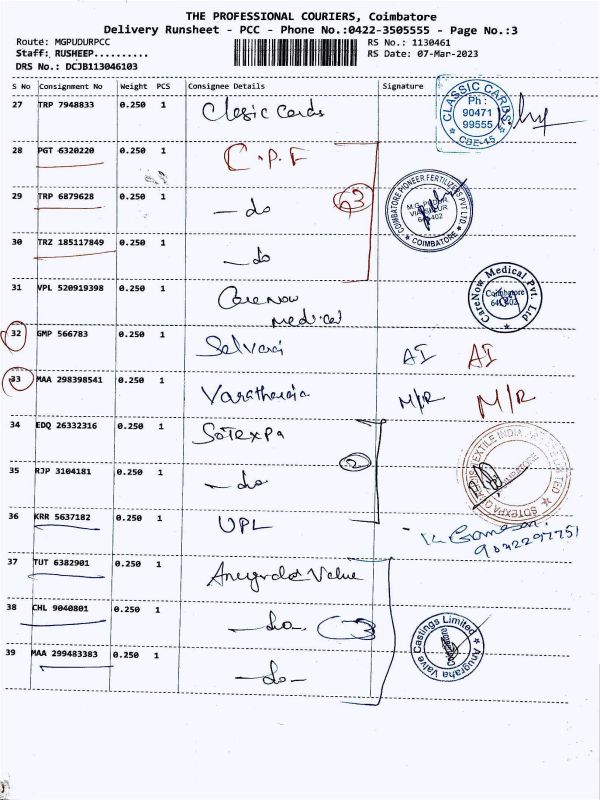 THE PROFESSIONAL COURIERS, Coimbatore
Delivery Runsheet - PCC - Phone No.:0422-3505555 - Page No.:3
Route: MGPUDURPCC RS No.: 1130461
Staff: RUSHEEP.......... RS Date: 07-Mar-2023
DRS No.: DCJB113046103
S No Consignment No Weight PCS Consignee Details Signature
27 TRP 7948833 0.250 1 Clasic Cards
CLASSIC CARDS
Ph :
90471
99555
CBE-45
28 PGT 6320220 0.250 1 C.P.F
29 TRP 6879628 0.250 1 -do 3
COIMBATORE PIONEER FERTILIZERS PVT LTD
M.G. PUDUR
COIMBATORE
30 TRZ 185117849 0.250 1 -do
31 VPL 520919398 0.250 1 CareNow
Medical
CareNow Medical Pvt. Ltd
Coimbatore
32 GMP 566783 0.250 1 Selvaraj AI AI
33 MAA 298398541 0.250 1 M/R M/R
34 EDQ 26332316 0.250 1 Sotexpa
35 RJP 3104181 0.250 1 -do 2
36 KRR 5637182 0.250 1 UPL
9042297751
37 TUT 6382901 0.250 1 Anugraha Valve
38 CHL 9040801 0.250 1 -do 3
Anugraha Valve Castings Limited
39 MAA 299483383 0.250 1 -do-